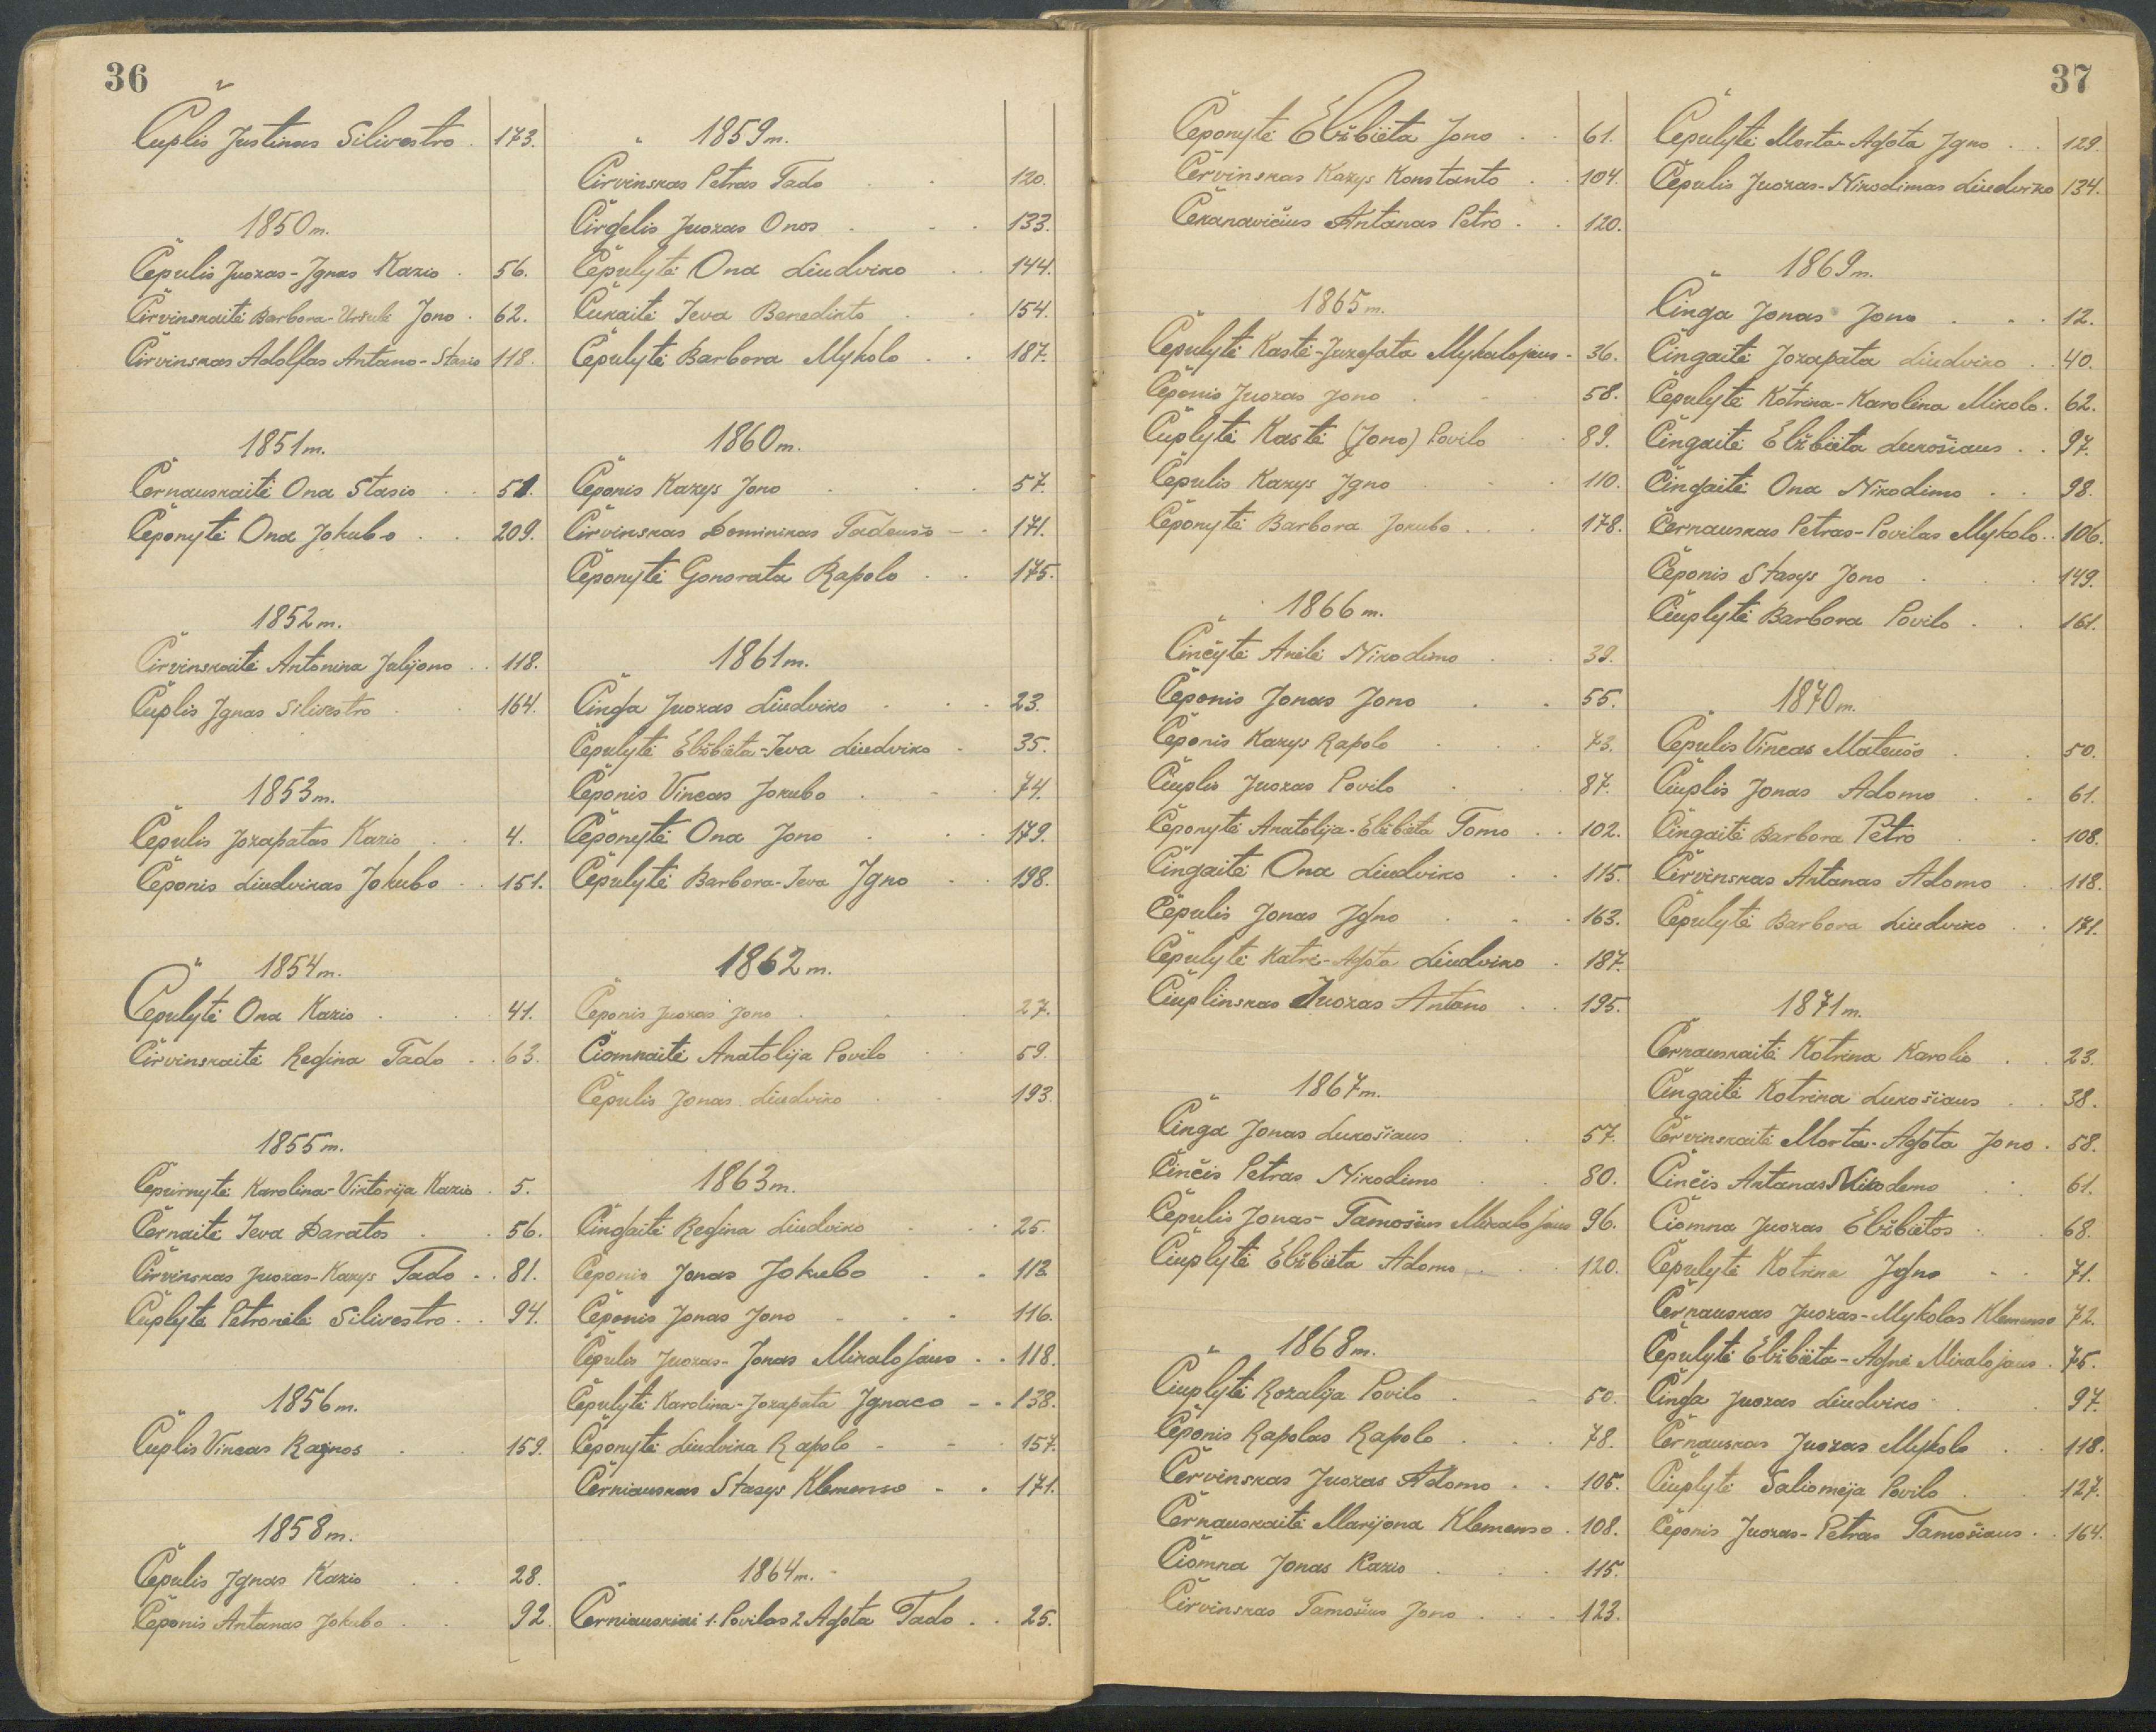 36
Čuplis Justinas Silivestro . 173.
1850 m.
Čepulis Juozas-Ignas Kazio . 56.
Čirvinskaitė Barbora-Uršulė Jono . 62.
Čirvinskas Adolfas Antano-Stasio 118.
1851 m.
Černauskaitė Ona Stasio . . 51.
Čeponytė Ona Jokubo . . 209.
1852 m.
Čirvinskaitė Antonina Julijono . . 118.
Čuplis Ignas Silivestro . . 164.
1853 m.
Čepulis Jozapatas Kazio . . 4.
Čeponis Liudvikas Jokubo . . 151.
1854 m.
Čepulytė Ona Kazio . . 41.
Čirvinskaitė Regina Tado . . 63.
1855 m.
Čepurnytė Karolina-Viktorija Kazio . 5.
Černaitė Ieva Daratos . . 56.
Čirvinskas Juozas-Kazys Tado . . 81.
Čuplytė Petronėlė Silivestro . . 94.
1856 m.
Čuplis Vincas Raginos . . 159.
1858 m.
Čepulis Ignas Kazio . . 28.
Čeponis Antanas Jokubo . . 92.
1859 m.
Čirvinskas Petras Tado . . 120.
Čirgelis Juozas Onos . . . 133.
Čepulytė Ona Liudviko . . 144.
Čukaitė Ieva Benedikto . . 154.
Čepulytė Barbora Mykolo . . 187.
1860 m.
Čeponis Kazys Jono . . 57.
Čirvinskas Dominikas Tadeušo - . 171.
Čeponytė Gonorata Rapolo . . 175.
1861 m.
Činga Juozas Liudviko . . . 23.
Čepulytė Elžbieta-Ieva Liudviko . 35.
Čeponis Vincas Jokubo . . . 74.
Čeponytė Ona Jono . . . 179.
Čepulytė Barbora-Ieva Igno . . 198.
1862 m.
Čeponis Juozas Jono . . 27.
Čiomnaitė Anatolija Povilo . . 59.
Čepulis Jonas Liudviko . . 193.
1863 m.
Čingaitė Regina Liudviko . . . 25.
Čeponis Jonas Jokubo . . 112.
Čeponis Jonas Jono . . . 116.
Čepulis Juozas-Jonas Mikalojaus . . 118.
Čepulytė Karolina-Jozapata Ignaco - . 138.
Čeponytė Liudvika Rapolo - - . 157.
Černiauskas Stasys Klemenso - . 171.
1864 m.
Černiauskai 1. Povilas 2. Agota Tado . . 25.
37
Čeponytė Elžbieta Jono . . 61.
Červinskas Kazys Konstanto . . 104.
Čekanavičius Antanas Petro . . 120.
1865 m.
Čepulytė Kastė-Juzefata Mykalojaus - 36.
Čeponis Juozas Jono . . 58.
Čuplytė Kastė (Jono) Povilo . . 89.
Čepulis Kazys Igno . . . 110.
Čeponytė Barbora Jokubo . . . 178.
1866 m.
Činčytė Anėlė Nikodimo . . 39.
Čeponis Jonas Jono . . 55.
Čeponis Kazys Rapolo . . . 73.
Čiuplis Juozas Povilo . . . 87.
Čeponytė Anatolija-Elžbieta Tomo . . 102.
Čingaitė Ona Liudviko . . 115.
Čepulis Jonas Igno . . . 163.
Čepulytė Katrė-Agota Liudviko . 187.
Čiuplinskas Juozas Antano . . 195.
1867 m.
Činga Jonas Lukošiaus . . 57.
Činčis Petras Nikodimo . . 80.
Čepulis Jonas-Tamošius Mikalojaus 96.
Čiuplytė Elžbieta Adomo . . . 120.
1868 m.
Čiuplytė Rozalija Povilo . . 50.
Čeponis Rapolas Rapolo . . . 78.
Červinskas Juozas Adomo . . 105.
Černauskaitė Marijona Klemenso . 108.
Čiomna Jonas Kazio . . . 115.
Čirvinskas Tamošius Jono . . . 123.
Čepulytė Morta-Agota Igno . . 129.
Čepulis Juozas-Nikodimas Liudviko 134.
1869 m.
Činga Jonas Jono . . . 12.
Čingaitė Jozapata Liudviko . . 40.
Čepulytė Kotrina-Karolina Mikolo . 62.
Čingaitė Elžbieta Lukošiaus . . 97.
Čingaitė Ona Nikodimo . . 98.
Černauskas Petras-Povilas Mykolo . . 106.
Čeponis Stasys Jono . . . 149.
Čiuplytė Barbora Povilo . . 161.
1870 m.
Čepulis Vincas Mateušo . . 50.
Čiuplis Jonas Adomo . . 61.
Čingaitė Barbora Petro . . 108.
Čirvinskas Antanas Adomo . 118.
Čepulytė Barbora Liudviko . . 171.
1871 m.
Černauskaitė Kotrina Karolio . . 23.
Čingaitė Kotrina Lukošiaus . . 38.
Červinskaitė Morta-Agota Jono . 58.
Činčis Antanas Nikodemo . . 61.
Čiomna Juozas Elžbietos . . 68.
Čepulytė Kotrina Igno . . 71.
Černauskas Juozas-Mykolas Klemenso 72.
Čepulytė Elžbieta-Agnė Mikalojaus . 75.
Činga Juozas Liudviko . . 97.
Černauskas Juozas Mykolo . . 118.
Čiuplytė Saliomėja Povilo . . 127.
Čeponis Juozas-Petras Tamošiaus . . 164.